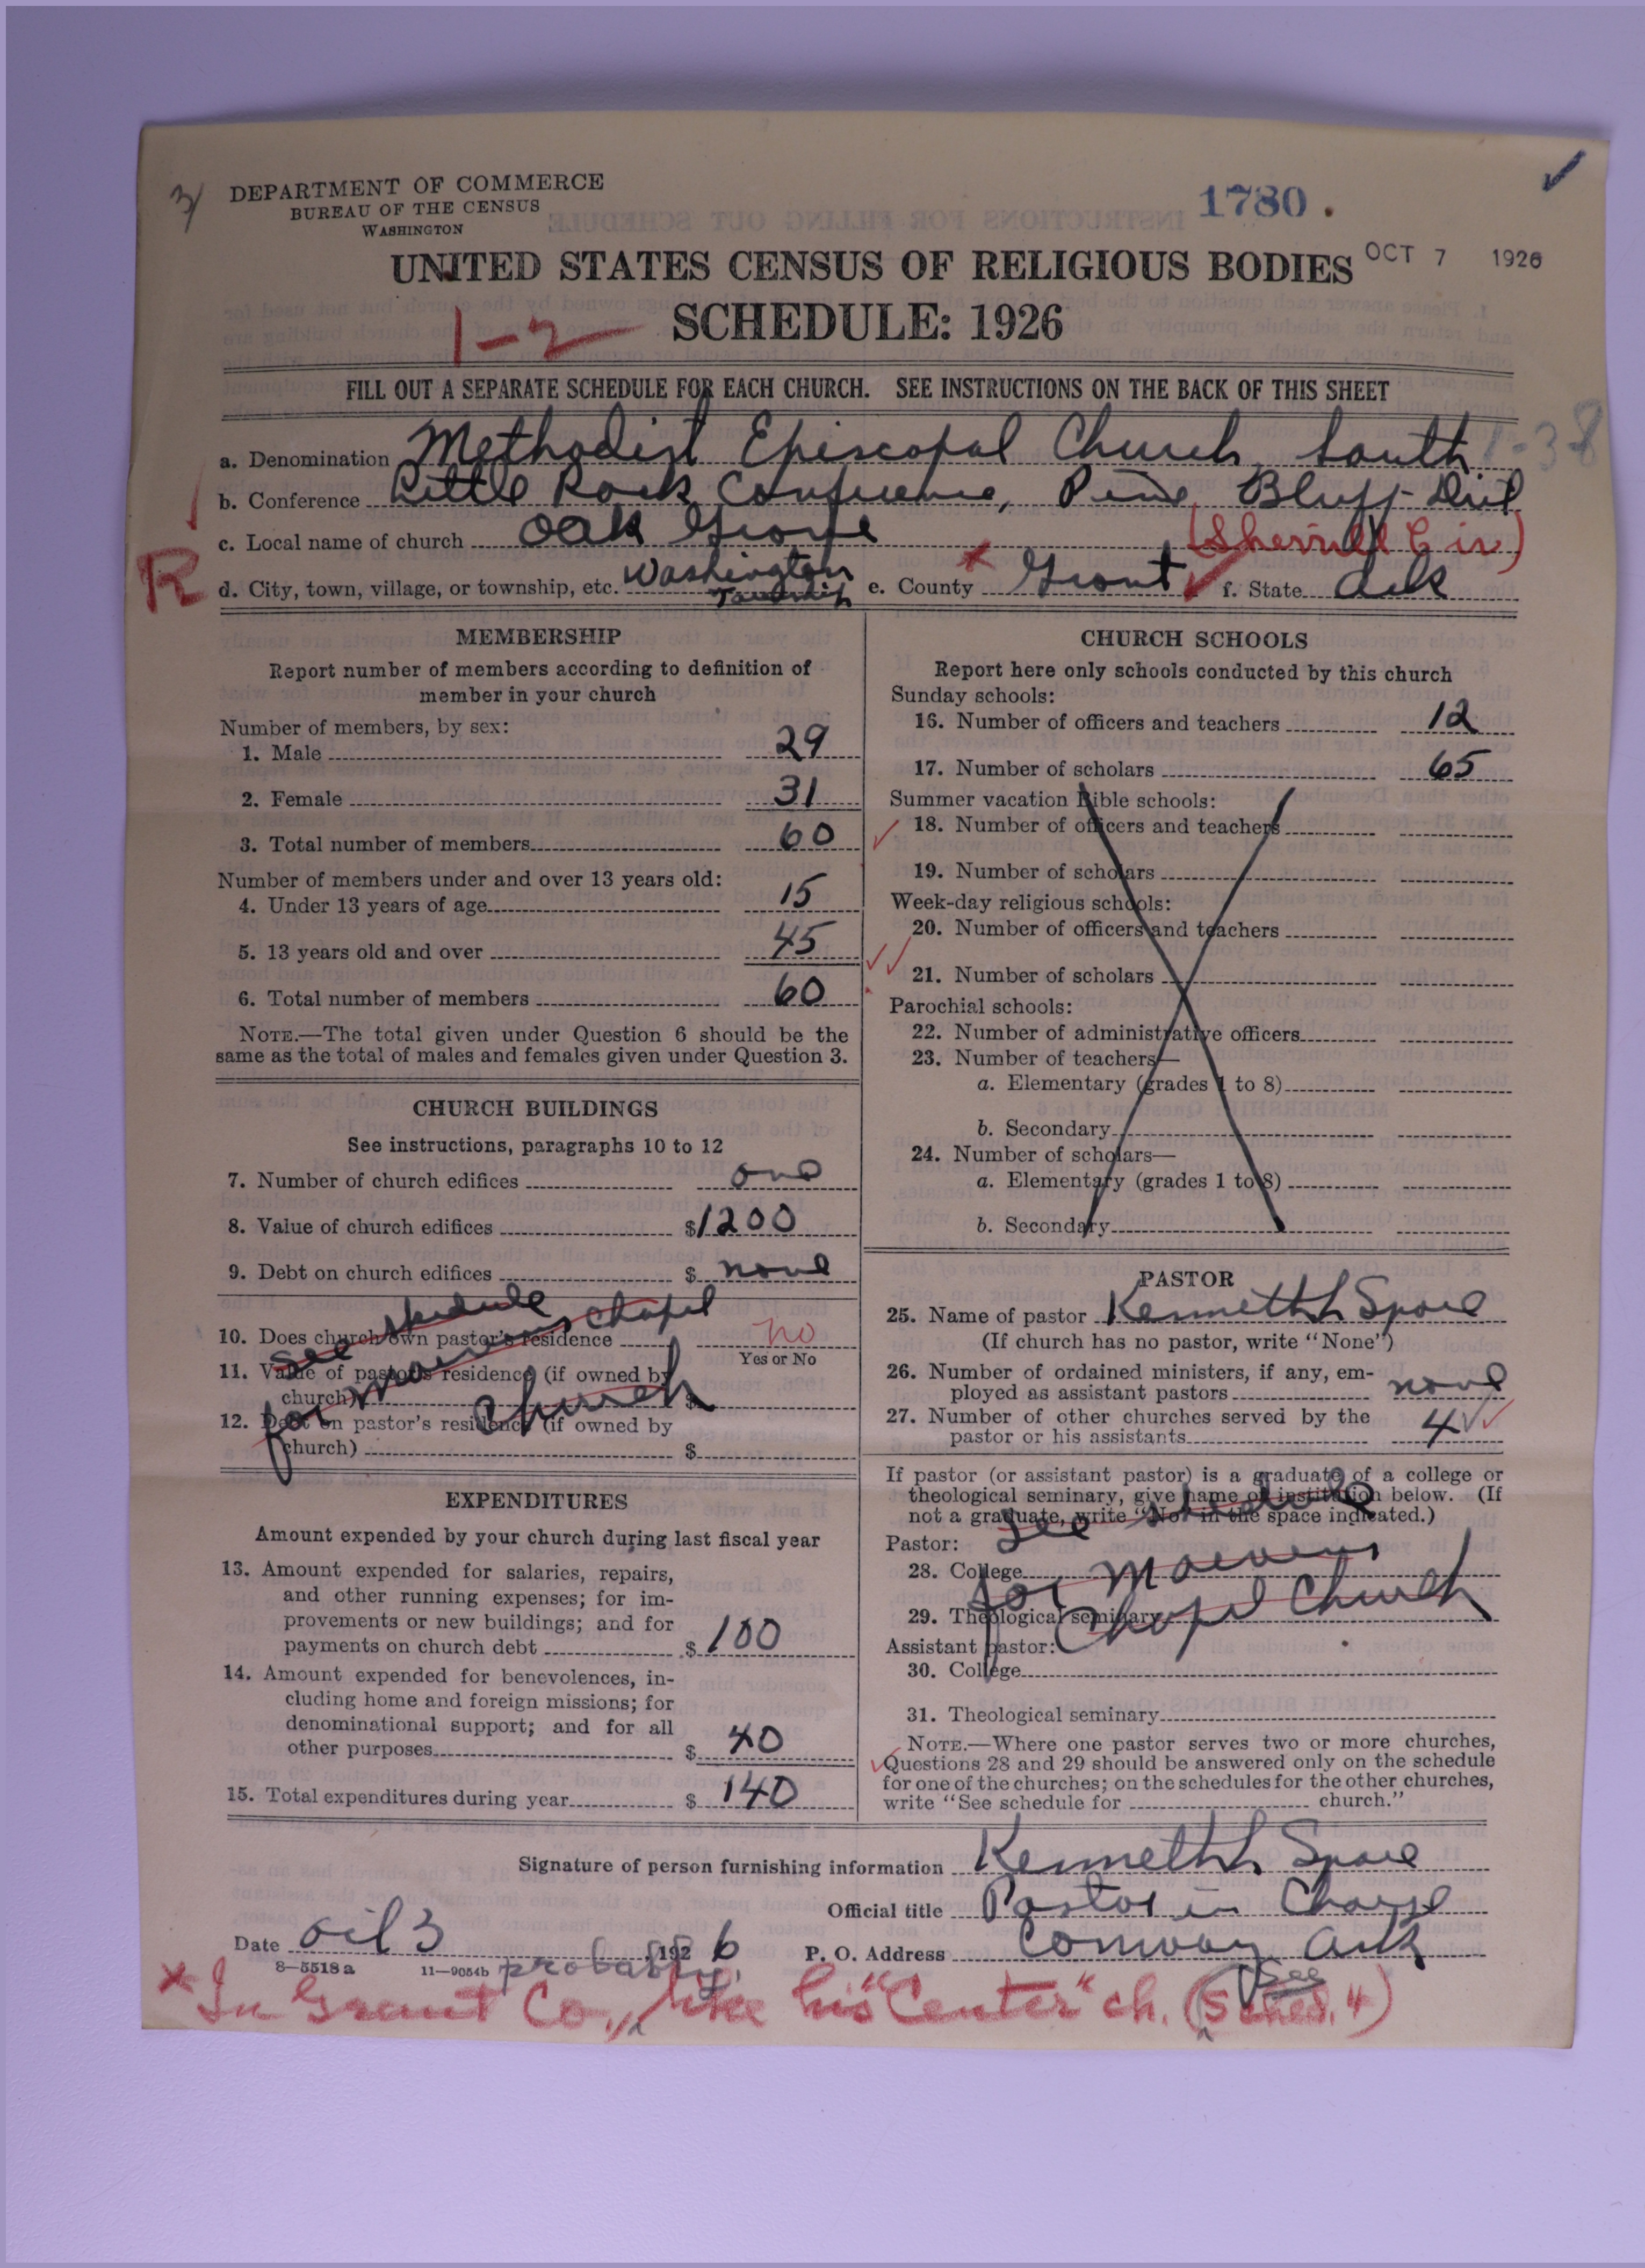 3/
DEPARTMENT OF COMMERCE
BUREAU OF THE CENSUS
WASHINGTON
1780.
UNITED STATES CENSUS OF RELIGIOUS BODIES
OCT 7 1926
SCHEDULE: 1926
1-2
FILL OUT A SEPARATE SCHEDULE FOR EACH CHURCH. SEE INSTRUCTIONS ON THE BACK OF THIS SHEET
a. Denomination Methodist Episcopal Church, South
b. Conference Little Rock Conference, Pine Bluff Dist
c. Local name of church Oak Grove (Sherrill Cir)
R
d. City, town, village, or township, etc. Washington Township e. County Grant f. State Ark
MEMBERSHIP
Report number of members according to definition of
member in your church
Number of members, by sex:
1. Male 29
2. Female 31
3. Total number of members 60
Number of members under and over 13 years old:
4. Under 13 years of age 15
5. 13 years old and over 45
6. Total number of members 60
NOTE.—The total given under Question 6 should be the
same as the total of males and females given under Question 3.
CHURCH BUILDINGS
See instructions, paragraphs 10 to 12
7. Number of church edifices one
8. Value of church edifices $1200
9. Debt on church edifices $ none
10. Does church own pastor's residence no
Yes or No
11. Value of pastor's residence (if owned by
church) $
12. Debt on pastor's residence (if owned by
church) $
see schedule
for chapel
Church
EXPENDITURES
Amount expended by your church during last fiscal year
13. Amount expended for salaries, repairs,
and other running expenses; for im-
provements or new buildings; and for
payments on church debt $ 100
14. Amount expended for benevolences, in-
cluding home and foreign missions; for
denominational support; and for all
other purposes $ 40
15. Total expenditures during year $ 140
CHURCH SCHOOLS
Report here only schools conducted by this church
Sunday schools:
16. Number of officers and teachers 12
17. Number of scholars 65
Summer vacation Bible schools:
18. Number of officers and teachers
19. Number of scholars
Week-day religious schools:
20. Number of officers and teachers
21. Number of scholars
Parochial schools:
22. Number of administrative officers
23. Number of teachers—
a. Elementary (grades 1 to 8)
b. Secondary
24. Number of scholars—
a. Elementary (grades 1 to 8)
b. Secondary
PASTOR
25. Name of pastor Kenneth L Spore
(If church has no pastor, write "None")
26. Number of ordained ministers, if any, em-
ployed as assistant pastors none
27. Number of other churches served by the
pastor or his assistants 4
If pastor (or assistant pastor) is a graduate of a college or
theological seminary, give name of institution below. (If
not a graduate, write "No" in the space indicated.)
Pastor:
28. College
29. Theological seminary
See schedule
for
Chapel Church
Assistant pastor:
30. College
31. Theological seminary
NOTE.—Where one pastor serves two or more churches,
Questions 28 and 29 should be answered only on the schedule
for one of the churches; on the schedules for the other churches,
write "See schedule for church."
Signature of person furnishing information Kenneth L Spore
Official title Pastor in Charge
Date 3, 1926 P. O. Address Conway Ark
8-5518a 11-9054b
* In Grant Co., probably, like his "Center" ch. (See Sched. 4)